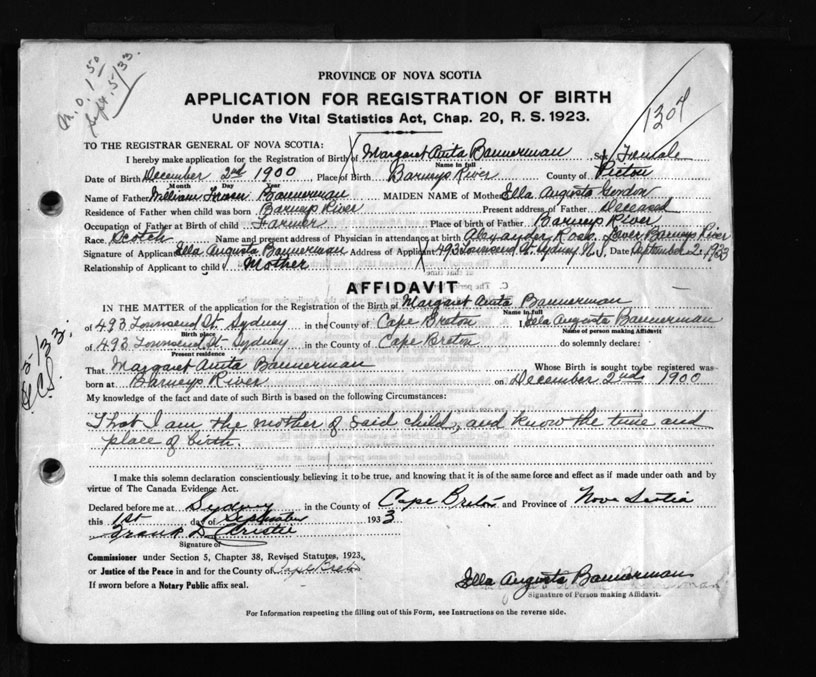 M.O. 1 50
Sept. 5/33
1307
PROVINCE OF NOVA SCOTIA
APPLICATION FOR REGISTRATION OF BIRTH
Under the Vital Statistics Act, Chap. 20, R. S. 1923.
TO THE REGISTRAR GENERAL OF NOVA SCOTIA:
I hereby make application for the Registration of Birth of Margaret Anita Bannerman Sex Female
Name in full
Date of Birth December 2nd 1900 Place of Birth Barneys River County of Pictou
Month Day Year
Name of Father William Bannerman MAIDEN NAME of Mother Ella Augusta
Residence of Father when child was born Barneys River Present address of Father Deceased
Occupation of Father at Birth of child Farmer Place of birth of Father Barneys River
Race Scotch Name and present address of Physician in attendance at birth Alexander Ross. Lower Barneys River
Signature of Applicant Ella Augusta Bannerman Address of Applicant 493 Townsend St. Sydney N.S. Date September 2 1933
Relationship of Applicant to child Mother
AFFIDAVIT
IN THE MATTER of the application for the Registration of the Birth of Margaret Anita Bannerman
Name in full
of 493 Townsend St. Sydney in the County of Cape Breton I, Ella Augusta Bannerman
Birth place Name of person making Affidavit
of 493 Townsend St. Sydney in the County of Cape Breton do solemnly declare:
Present residence
That Margaret Anita Bannerman Whose Birth is sought to be registered was
born at Barneys River on December 2nd 1900
My knowledge of the fact and date of such Birth is based on the following Circumstances:
That I am the mother of said child, and know the time and
place of birth.
I make this solemn declaration conscientiously believing it to be true, and knowing that it is of the same force and effect as if made under oath and by
virtue of The Canada Evidence Act.
Declared before me at Sydney in the County of Cape Breton and Province of Nova Scotia
this 1st day of September 1933
Frank D. Christie
Signature of
Commissioner under Section 5, Chapter 38, Revised Statutes, 1923,
or Justice of the Peace in and for the County of Cape Breton
If sworn before a Notary Public affix seal.
Ella Augusta Bannerman
Signature of Person making Affidavit.
For Information respecting the filling out of this Form, see Instructions on the reverse side.